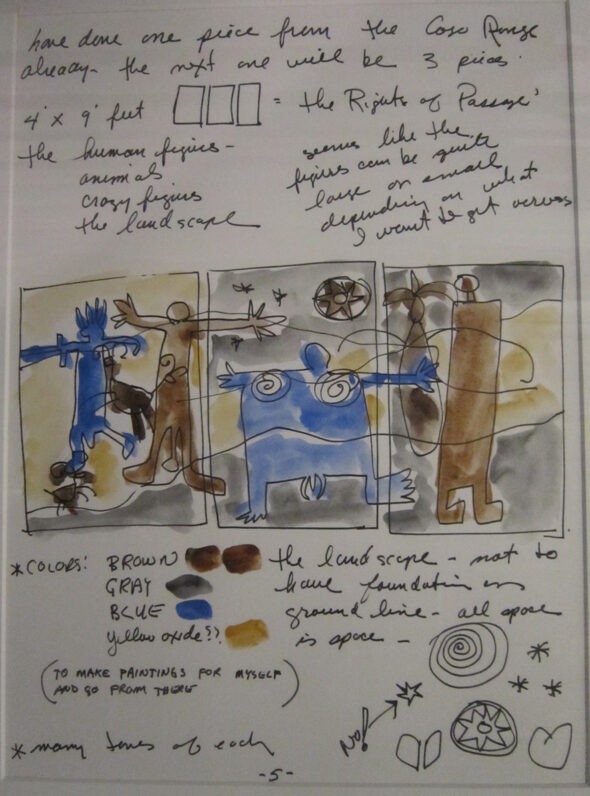 have done one piece from the Coso Range
already - the next one will be 3 pieces.
4' x 9' feet = the Rights of Passage'
the human figures -
animals
crazy figures
the landscape
seems like the
figures can be quite
large or small
depending on what
I want to get across
*COLORS: BROWN
GRAY
BLUE
yellow oxide??
the landscape - not to
have foundation or
ground line - all space
is space -
(TO MAKE PAINTINGS FOR MYSELF
AND GO FROM THERE)
NO!
*many tones of each
-5-